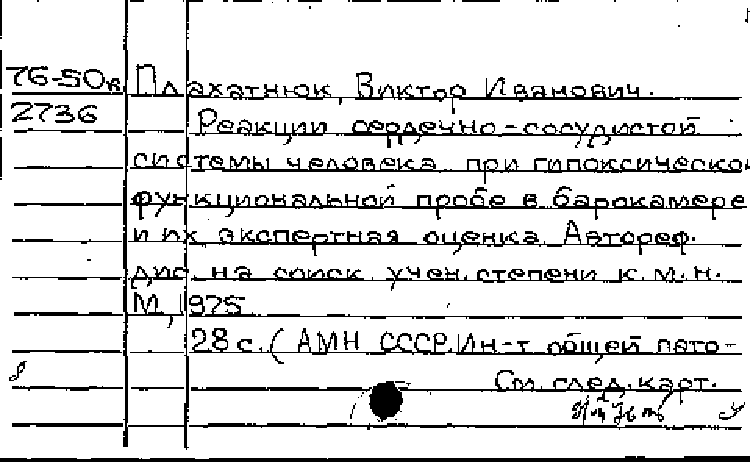 76-50к Плахатнюк, Виктор Иванович.
2736 Реакции сердечно-сосудистой
системы человека при гипоксической
функциональной пробе в барокамере
и их экспертная оценка Автореф.
дис. на соиск. учен. степени к.м.н.
М, 1975
28 с. (АМН СССР. Ин-т общей пато-
См. след. карт.